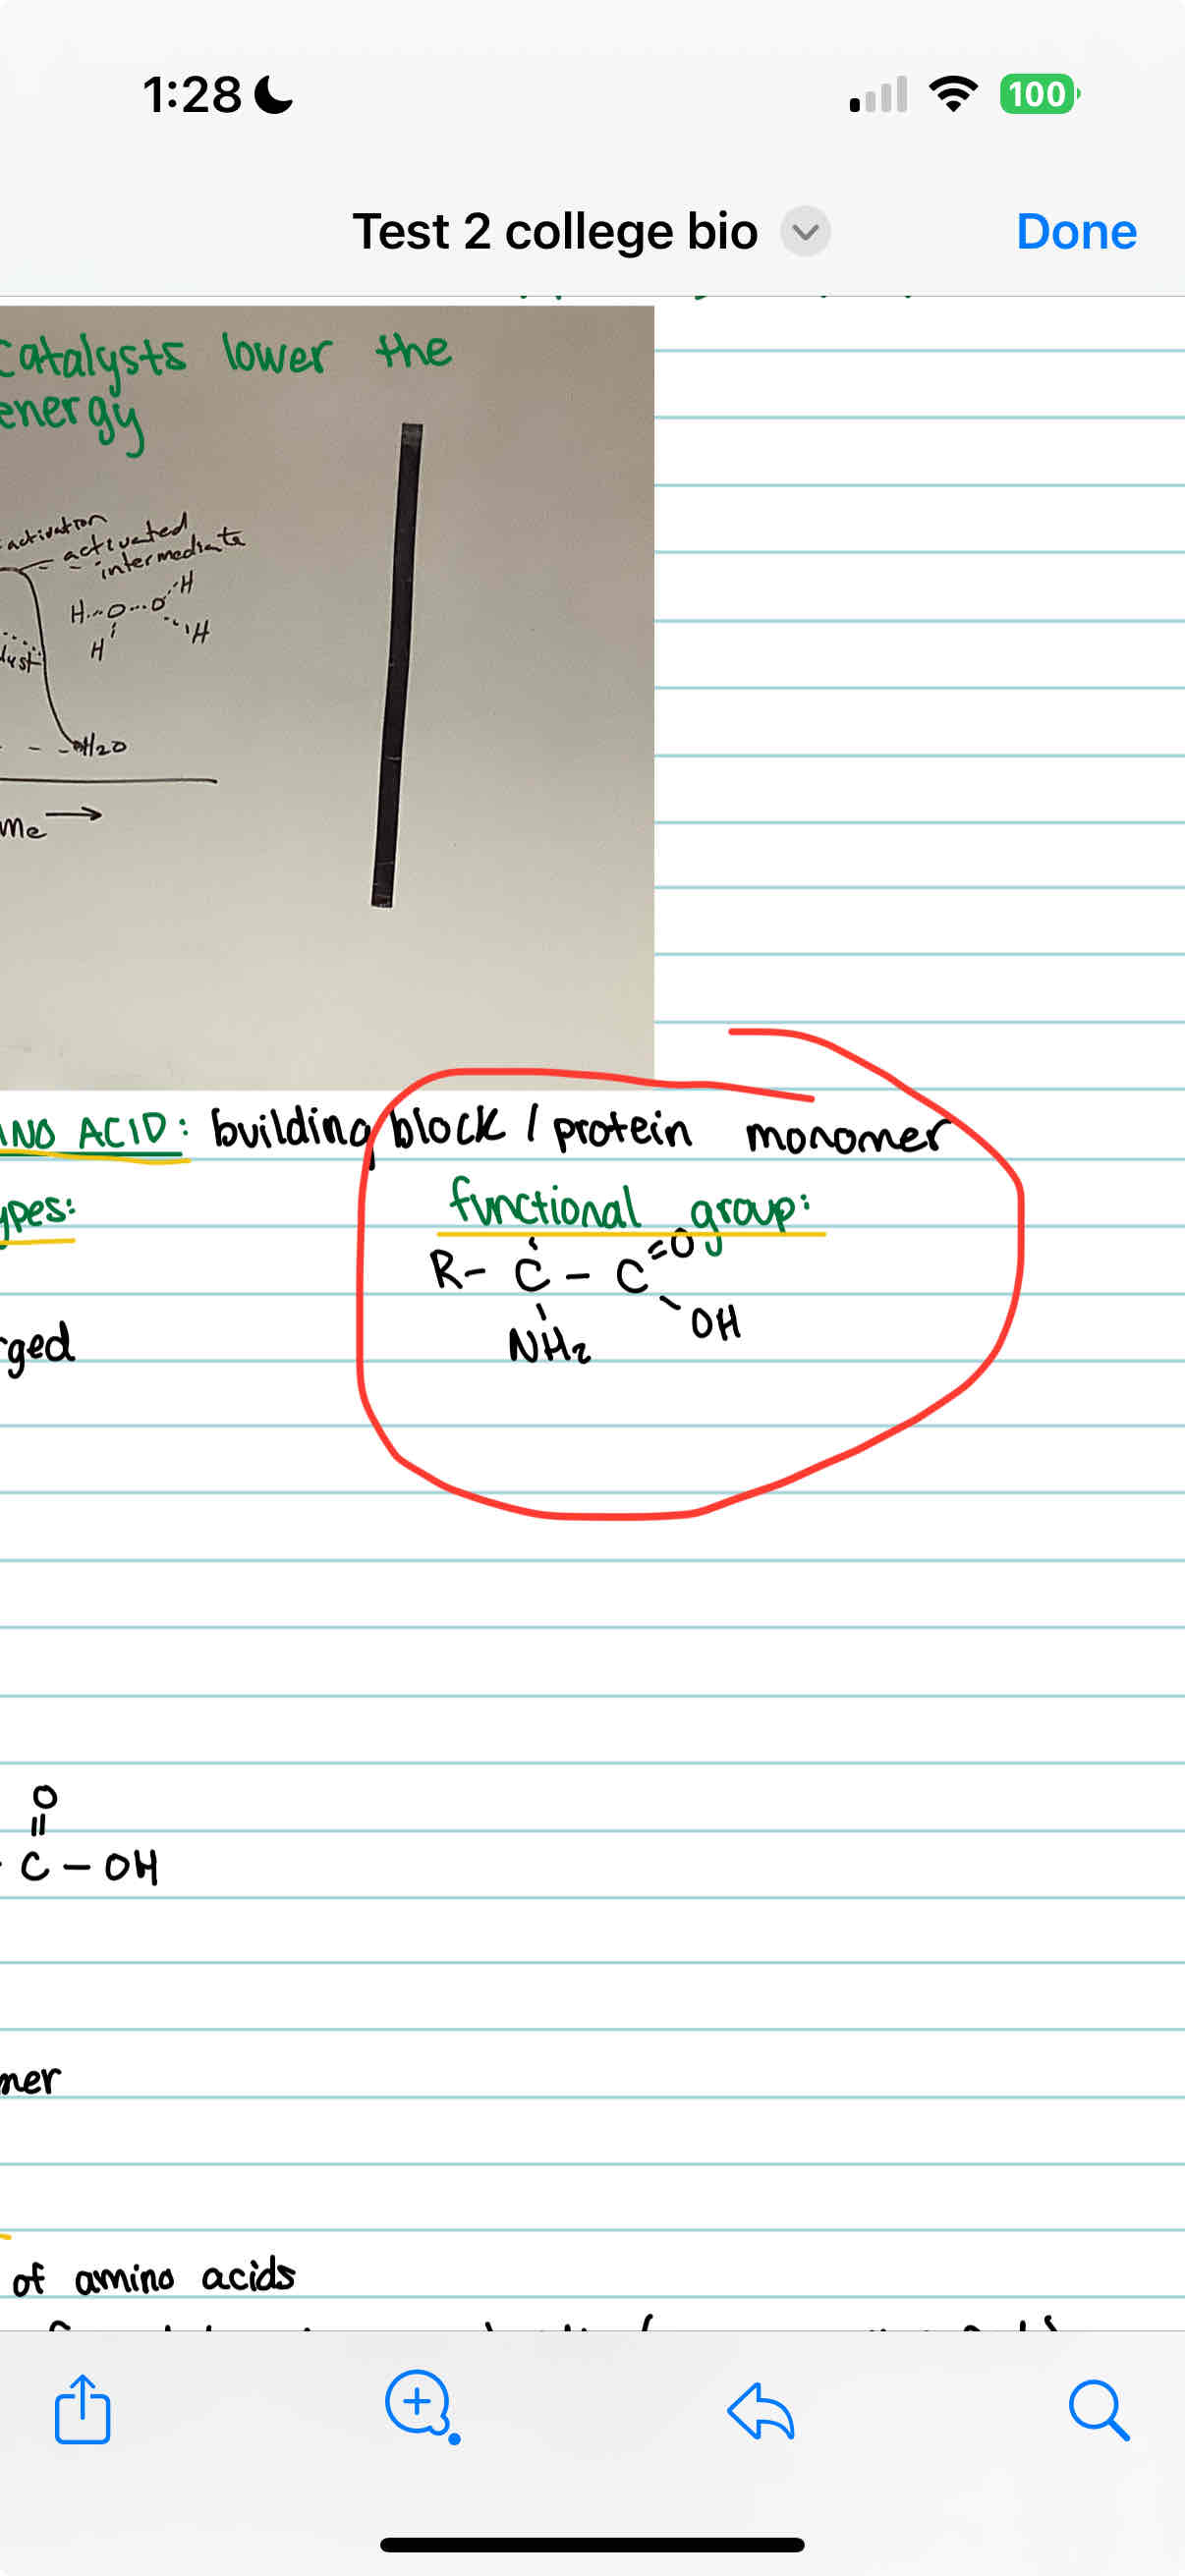 1:28
100
Test 2 college bio
Done
catalysts lower the
energy
activation
activated
intermediate
H---O---O---H
H
H
H2O
me →
INO ACID: building block / protein monomer
ypes:
functional group:
R- C - C =O
OH
NH2
rged
O
||
C - OH
mer
of amino acids